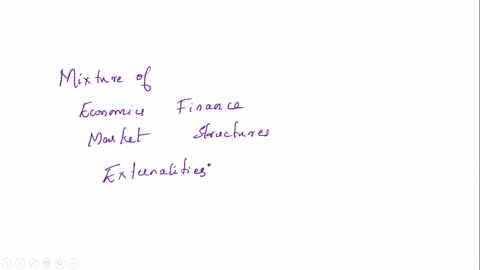 Mixture of
Economics Finance
Market Structures
Externalities